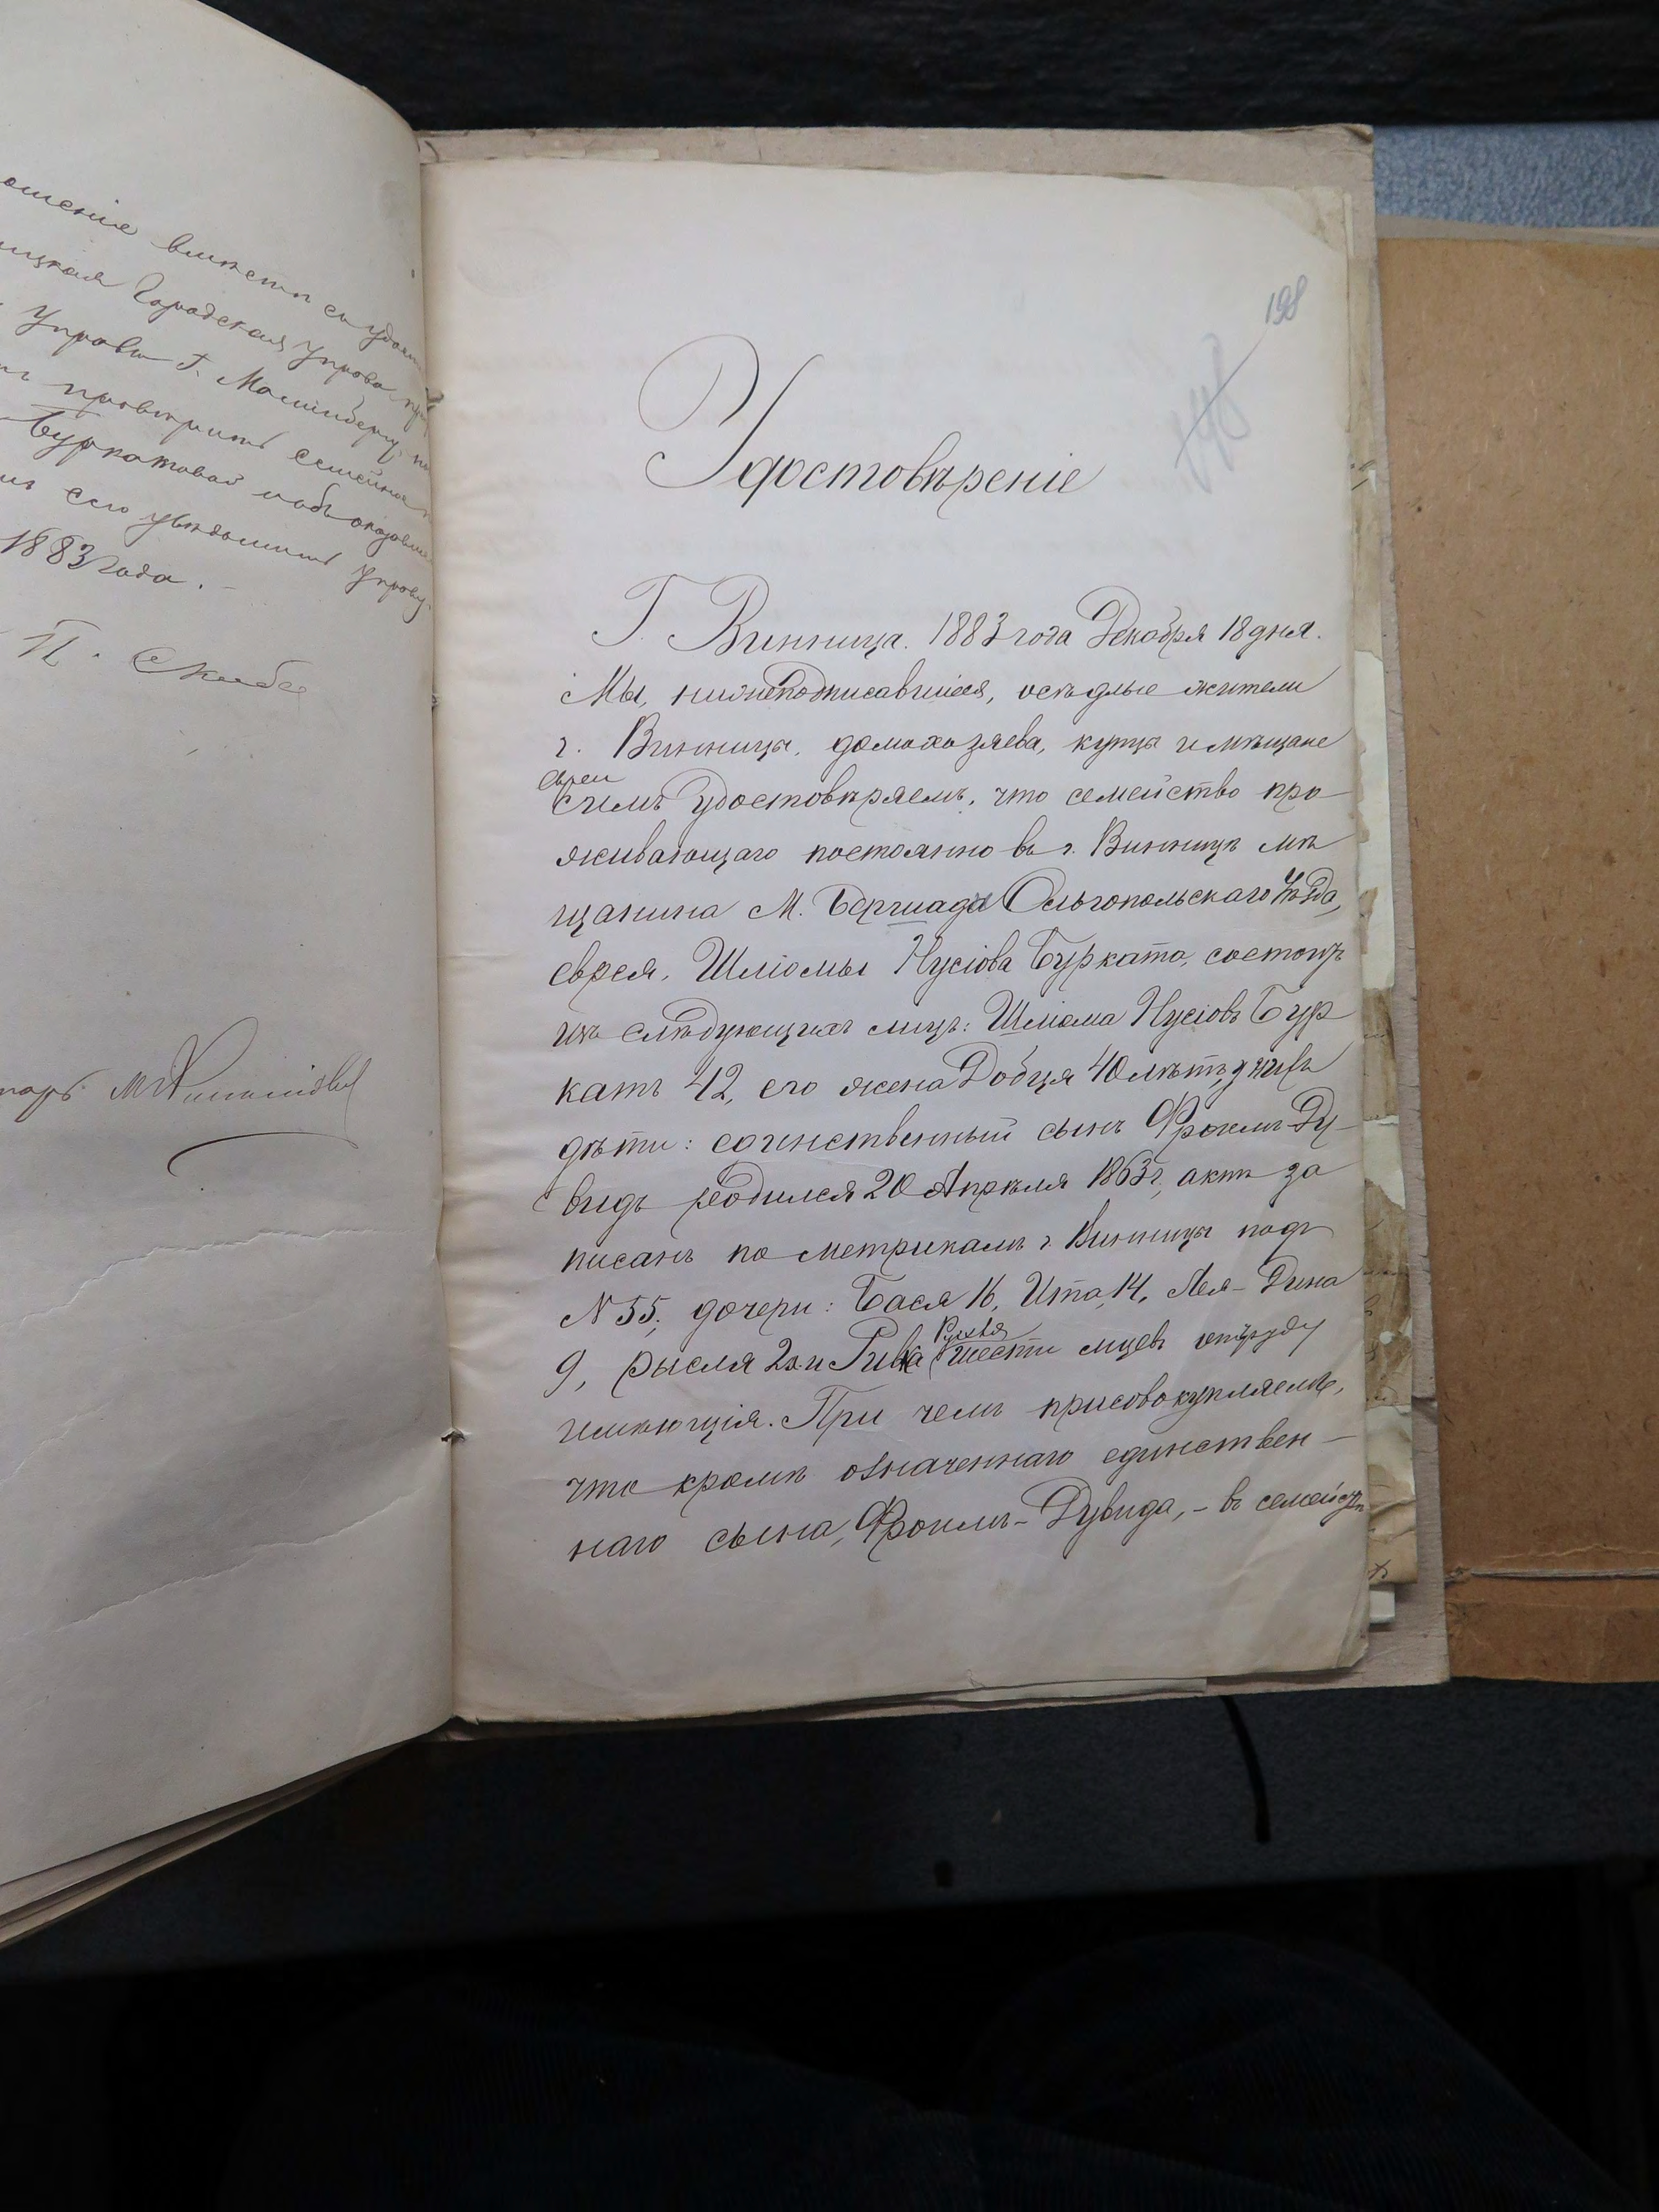 ошенія вмѣстѣ съ удост
ицкая Городская Управа
Управы Г.
провѣрить семейное
Буркатовой
сего увѣдомить Управу
1883 года.
П. Скиба
198
198
Удостовѣреніе
Г. Винница. 1883 года Декабря 18 дня.
Мы, нижеподписавшіеся, осѣдлые жители
г. Винницы, домохозяева, купцы и мѣщане
евреи
симъ удостовѣряемъ, что семейство про-
живающаго постоянно въ г. Винницѣ мѣ
щанина М. Бершада Ольгопольскаго уѣзда,
еврея, Шліомы Нусіова Бурката, состоитъ
изъ слѣдующихъ лицъ: Шліома Нусіовъ Бур
катъ 42, его жена Добця 40 лѣтъ, у нихъ
дѣти: единственный сынъ Фроимъ-Ду-
видъ родился 20 Апрѣля 1863 г, актъ за
писанъ по метрикамъ г. Винницы подъ
N 55; дочери: Бася 16, Ита 14, Лея-Дина
Рухля
9, Рысля 2х и Ривка шести мцевъ отъ роду
имѣющія. При чемъ присовокупляемъ,
что кромѣ означеннаго единствен-
наго сына, Фроимъ-Дувида, - въ семействѣ